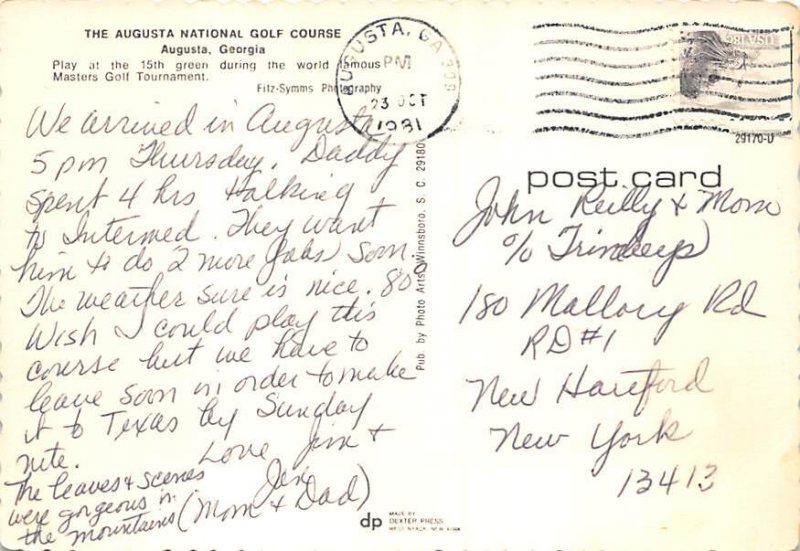 THE AUGUSTA NATIONAL GOLF COURSE
Augusta, Georgia
Play at the 15th green during the world famous
Masters Golf Tournament.
Fitz-Symms Photography
We arrived in Augusta
5 pm Thursday. Daddy
spent 4 hrs talking
to Intermed. They want
him to do 2 more jobs soon.
The weather sure is nice. 80°
Wish I could play this
course but we have to
leave soon in order to make
it to Texas by Sunday
nite. Love Jim &
Jen
(Mom & Dad)
The leaves & scenes
were gorgeous in
the mountains
AUGUSTA, GA 309
PM
23 OCT
1981
USA 18c
29170-U
post card
Pub. by Photo Arts, Winnsboro, S. C. 29180
John Reilly & Mom
% Trindeys
180 Mallory Rd
RD #1
New Hartford
New York
13413
dp
MADE BY
DEXTER PRESS
WEST NYACK, NEW YORK